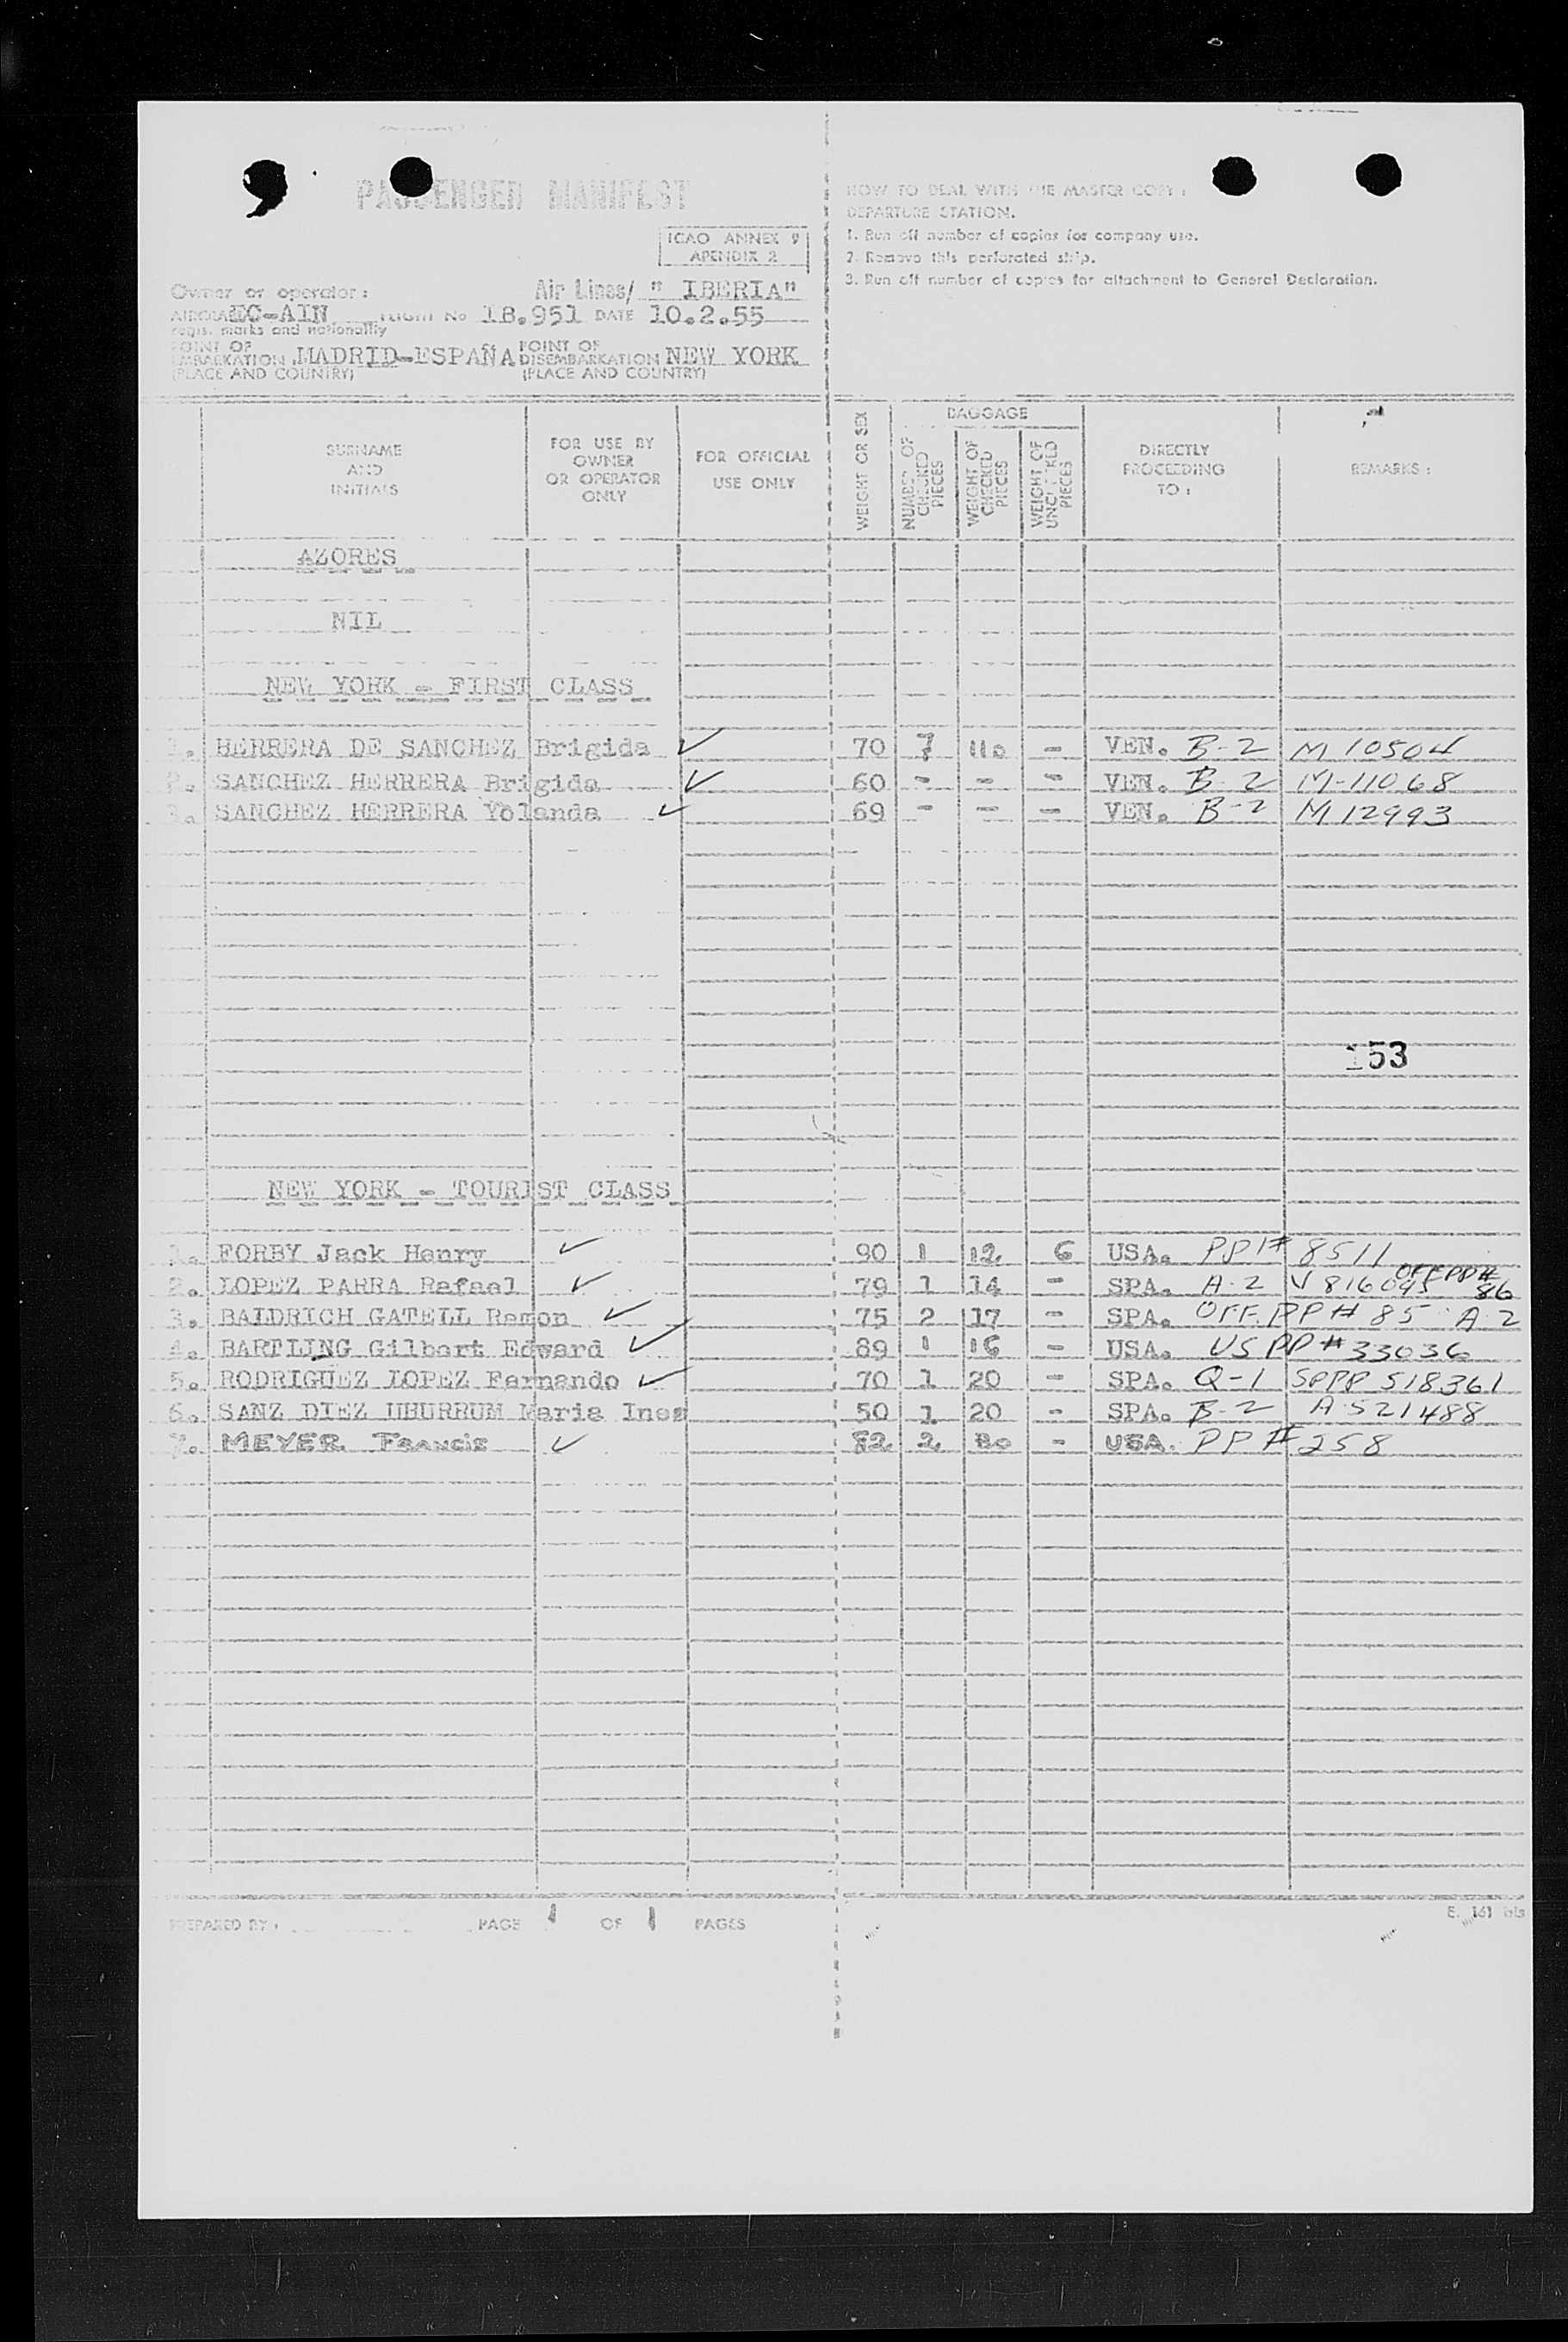 PASSENGER MANIFEST
ICAO ANNEX 9
APENDIX 2
Owner or operator: Air Lines/ " IBERIA"
AIRCRAFT EC-AIN FLIGHT No IB.951 DATE 10.2.55
regis. marks and nationality
POINT OF EMBARKATION MADRID-ESPAÑA POINT OF DISEMBARKATION NEW YORK
(PLACE AND COUNTRY) (PLACE AND COUNTRY)
HOW TO DEAL WITH THE MASTER COPY:
DEPARTURE STATION.
1. Run off number of copies for company use.
2. Remove this perforated strip.
3. Run off number of copies for attachment to General Declaration.
SURNAME AND INITIALS
FOR USE BY OWNER OR OPERATOR ONLY
FOR OFFICIAL USE ONLY
WEIGHT OR SEX
BAGGAGE
NUMBER OF CHECKED PIECES
WEIGHT OF CHECKED PIECES
WEIGHT OF UNCHECKED PIECES
DIRECTLY PROCEEDING TO:
REMARKS:
AZORES
NIL
NEW YORK - FIRST CLASS
1. HERRERA DE SANCHEZ Brigida ✓ 70 7 110 - VEN. B-2 M 10504
2. SANCHEZ HERRERA Brigida ✓ 60 - - - VEN. B-2 M-11068
3. SANCHEZ HERRERA Yolanda ✓ 69 - - - VEN. B-2 M 12993
153
NEW YORK - TOURIST CLASS
1. FORBY Jack Henry ✓ 90 1 12 6 USA. PP# 8511
2. LOPEZ PARRA Rafael ✓ 79 1 14 - SPA. A-2 V 816095 OFF PP# 86
3. BALDRICH GATELL Ramon ✓ 75 2 17 - SPA. OFF. PP# 85 A-2
4. BARTLING Gilbert Edward ✓ 89 1 16 - USA. US PP# 33036
5. RODRIGUEZ LOPEZ Fernando ✓ 70 1 20 - SPA. Q-1 SPPP 518361
6. SANZ DIEZ UBURRUM Maria Ines 50 1 20 - SPA. B-2 A 521488
7. MEYER Francis ✓ 82 2 - USA. PP# 258
PREPARED BY: PAGE 1 OF 1 PAGES
E. 161 bis